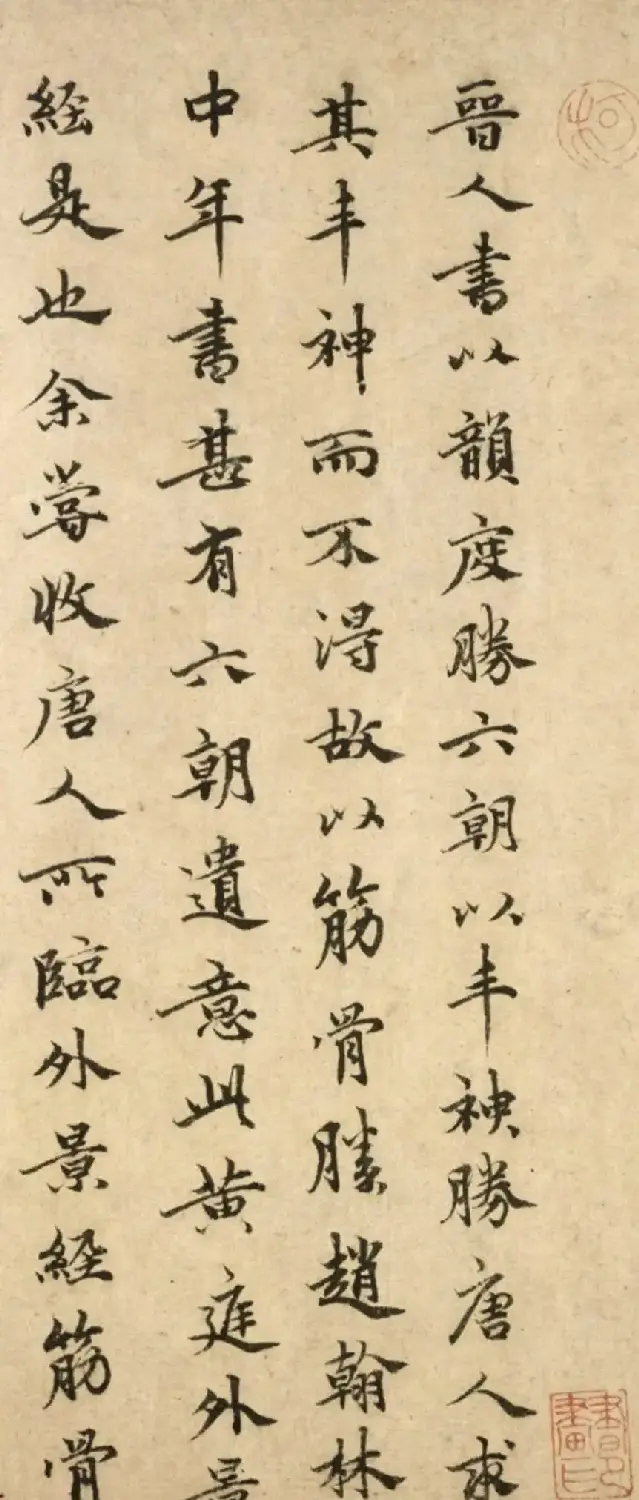 晉人書以韻度勝六朝以丰神勝唐人求
其丰神而不得故以筋骨勝趙翰林
中年書甚有六朝遺意此黃庭外景
經是也余嘗收唐人所臨外景經筋骨